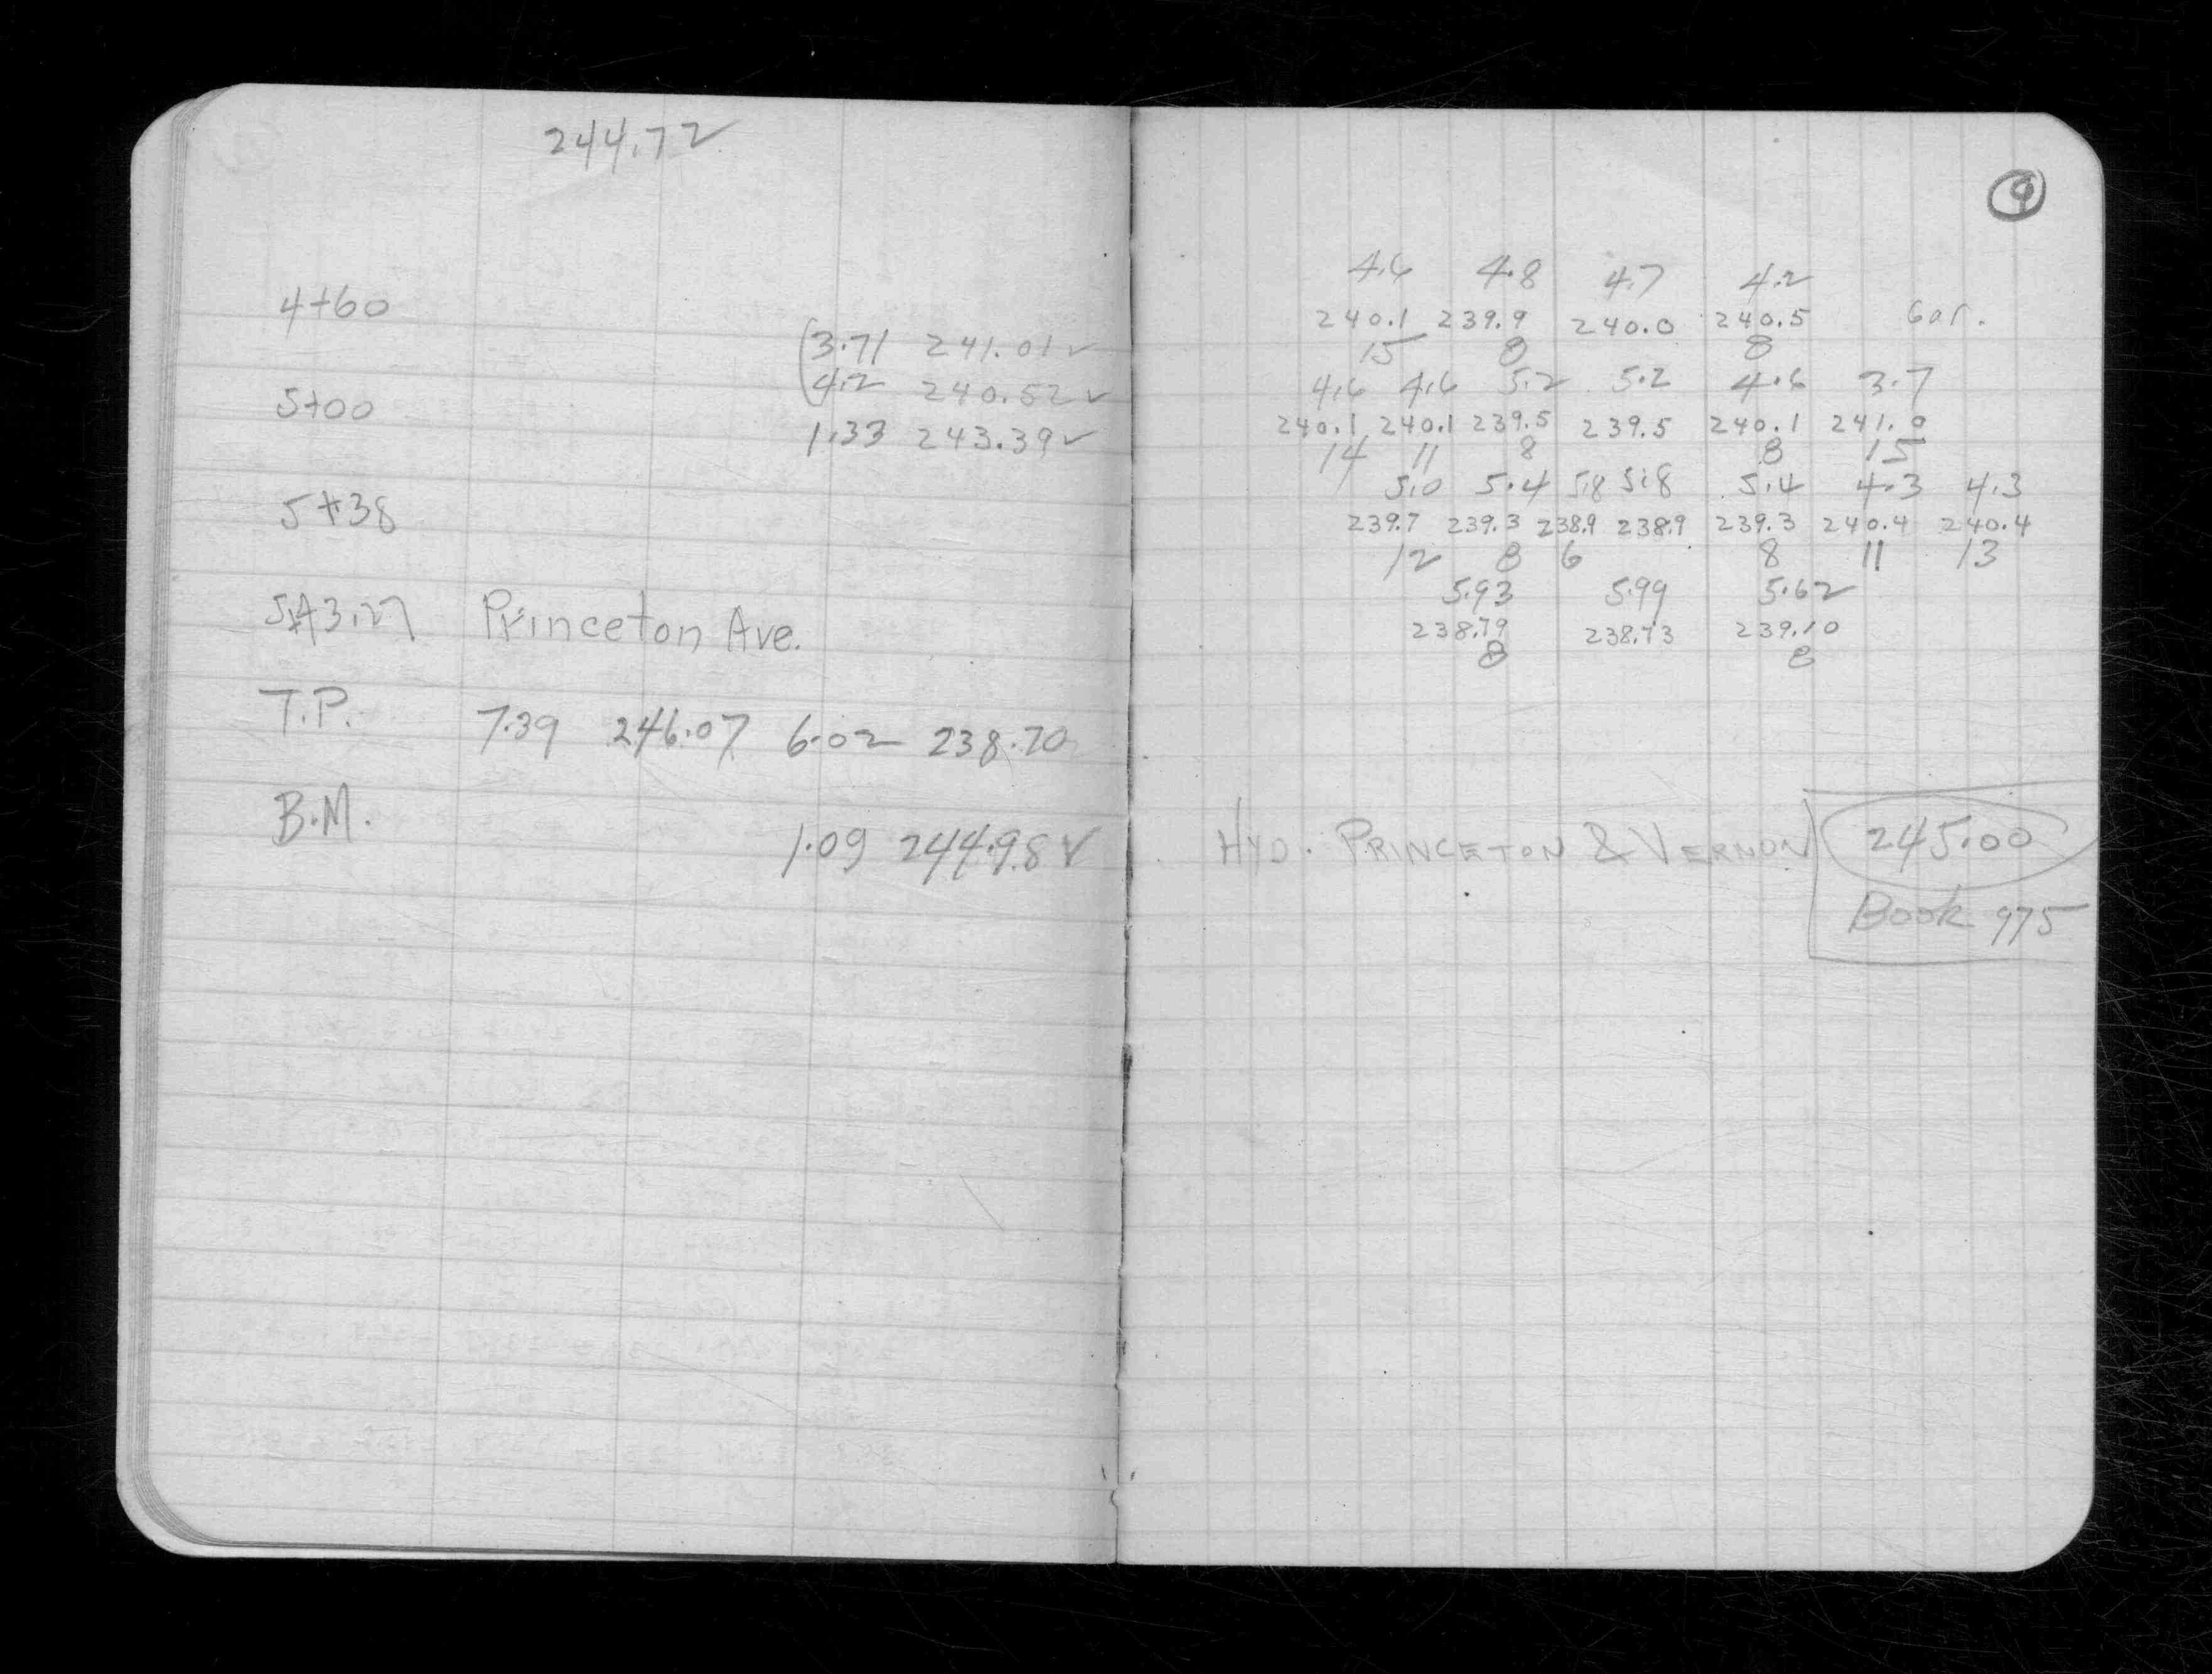 244.72
4+60
(3.71 241.01 ✓
(4.2 240.52 ✓
5+00
1.33 243.39 ✓
5+38
Princeton Ave.
T.P. 7.39 246.07 6.02 238.70
B.M. 1.09 244.98 ✓
9
4.6 4.8 4.7 4.2
240.1 239.9 240.0 240.5 Gar.
15 8 8
4.6 4.6 5.2 5.2 4.6 3.7
240.1 240.1 239.5 239.5 240.1 241.0
14 11 8 8 15
5.0 5.4 5.8 5.8 5.4 4.3 4.3
239.7 239.3 238.9 238.9 239.3 240.4 240.4
12 8 6 8 11 13
5.93 5.99 5.62
238.79 238.73 239.10
8 8
HYD. PRINCETON & VERNON 245.00
Book 975